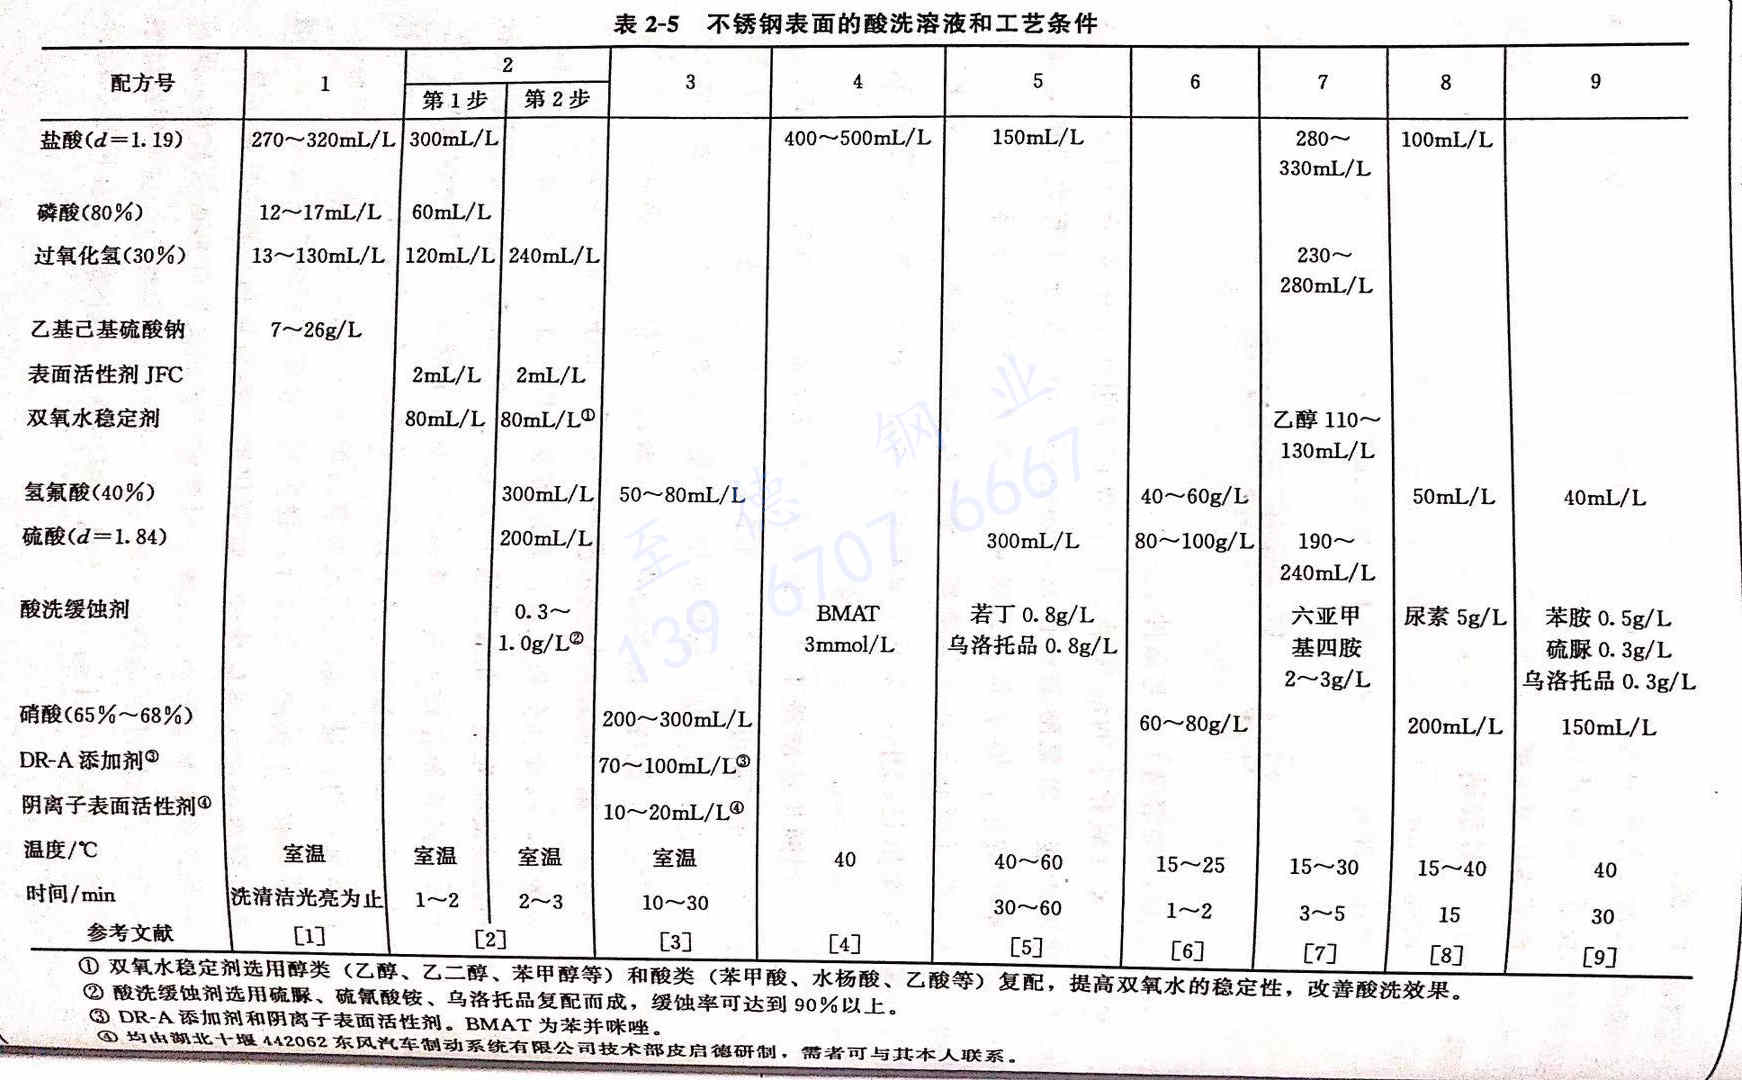 表 2-5 不锈钢表面的酸洗溶液和工艺条件
配方号 1 2 3 4 5 6 7 8 9
第1步 第2步
盐酸(d=1.19) 270～320mL/L 300mL/L 400～500mL/L 150mL/L 280～ 100mL/L
330mL/L
磷酸(80%) 12～17mL/L 60mL/L
过氧化氢(30%) 13～130mL/L 120mL/L 240mL/L 230～
280mL/L
乙基己基硫酸钠 7～26g/L
表面活性剂 JFC 2mL/L 2mL/L
双氧水稳定剂 80mL/L 80mL/L① 乙醇 110～
130mL/L
氢氟酸(40%) 300mL/L 50～80mL/L 40～60g/L 50mL/L 40mL/L
硫酸(d=1.84) 200mL/L 300mL/L 80～100g/L 190～
240mL/L
酸洗缓蚀剂 0.3～ BMAT 若丁 0.8g/L 六亚甲 尿素 5g/L 苯胺 0.5g/L
1.0g/L② 3mmol/L 乌洛托品 0.8g/L 基四胺 硫脲 0.3g/L
2～3g/L 乌洛托品 0.3g/L
硝酸(65%～68%) 200～300mL/L 60～80g/L 200mL/L 150mL/L
DR-A 添加剂③ 70～100mL/L③
阴离子表面活性剂④ 10～20mL/L④
温度/℃ 室温 室温 室温 室温 40 40～60 15～25 15～30 15～40 40
时间/min 洗清洁光亮为止 1～2 2～3 10～30 30～60 1～2 3～5 15 30
参考文献 [1] [2] [3] [4] [5] [6] [7] [8] [9]
① 双氧水稳定剂选用醇类（乙醇、乙二醇、苯甲醇等）和酸类（苯甲酸、水杨酸、乙酸等）复配，提高双氧水的稳定性，改善酸洗效果。
② 酸洗缓蚀剂选用硫脲、硫氰酸铵、乌洛托品复配而成，缓蚀率可达到 90%以上。
③ DR-A 添加剂和阴离子表面活性剂。BMAT 为苯并咪唑。
④ 均由湖北十堰 442062 东风汽车制动系统有限公司技术部皮启德研制，需者可与其本人联系。
至德钢业
139 6707 6667